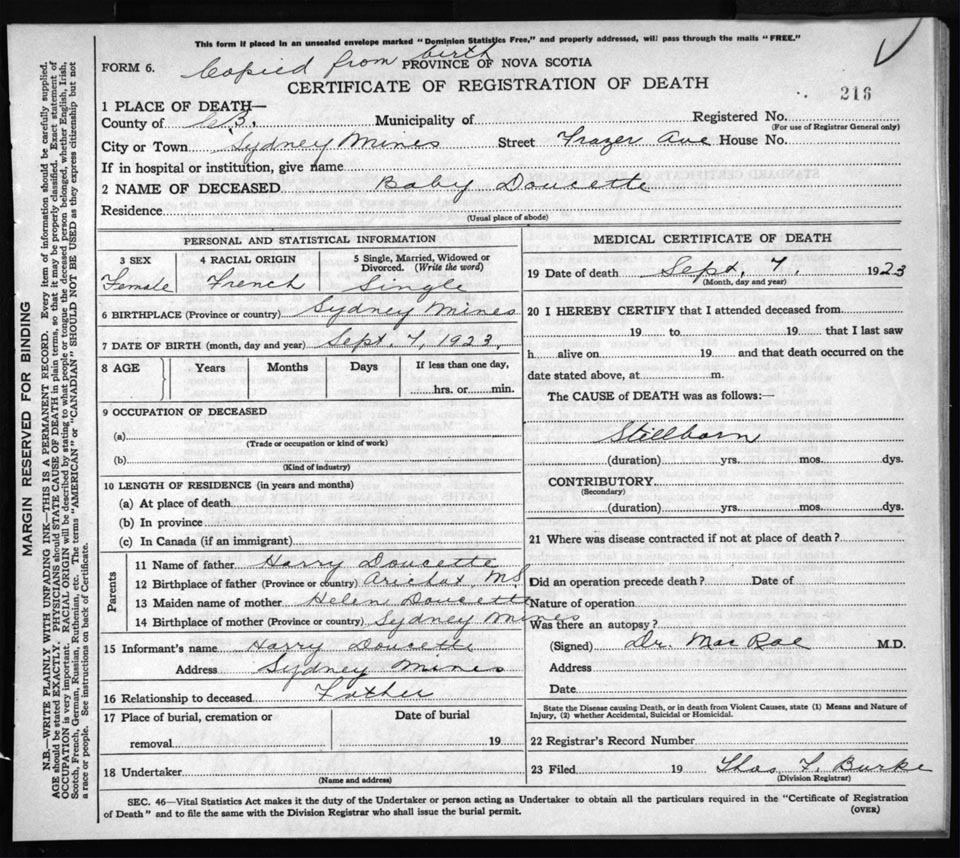 This form if placed in an unsealed envelope marked "Dominion Statistics Free," and properly addressed, will pass through the mails "FREE."
FORM 6. Copied from birth PROVINCE OF NOVA SCOTIA
CERTIFICATE OF REGISTRATION OF DEATH
216
1 PLACE OF DEATH—
County of C.B. Municipality of Registered No.
(For use of Registrar General only)
City or Town Sydney Mines Street Frazer Ave House No.
If in hospital or institution, give name
2 NAME OF DECEASED Baby Doucette
Residence
(Usual place of abode)
PERSONAL AND STATISTICAL INFORMATION
3 SEX 4 RACIAL ORIGIN 5 Single, Married, Widowed or Divorced. (Write the word)
Female French Single
6 BIRTHPLACE (Province or country) Sydney Mines
7 DATE OF BIRTH (month, day and year) Sept. 7, 1923.
8 AGE Years Months Days If less than one day,
hrs. or min.
9 OCCUPATION OF DECEASED
(a)
(Trade or occupation or kind of work)
(b)
(Kind of industry)
10 LENGTH OF RESIDENCE (in years and months)
(a) At place of death
(b) In province
(c) In Canada (if an immigrant)
Parents
11 Name of father Harry Doucette
12 Birthplace of father (Province or country) Arichat, N.S
13 Maiden name of mother Helen Doucette
14 Birthplace of mother (Province or country) Sydney Mines
15 Informant's name Harry Doucette
Address Sydney Mines
16 Relationship to deceased Father
17 Place of burial, cremation or Date of burial
removal 19
18 Undertaker
(Name and address)
MEDICAL CERTIFICATE OF DEATH
19 Date of death Sept. 7, 1923
(Month, day and year)
20 I HEREBY CERTIFY that I attended deceased from
19 to 19 that I last saw
h alive on 19 and that death occurred on the
date stated above, at m.
The CAUSE of DEATH was as follows:—
Stillborn
(duration) yrs. mos. dys.
CONTRIBUTORY
(Secondary)
(duration) yrs. mos. dys.
21 Where was disease contracted if not at place of death?
Did an operation precede death? Date of
Nature of operation
Was there an autopsy?
(Signed) Dr. MacRae M.D.
Address
Date
State the Disease causing Death, or in death from Violent Causes, state (1) Means and Nature of
Injury, (2) whether Accidental, Suicidal or Homicidal.
22 Registrar's Record Number
23 Filed 19 Thos F. Burke
(Division Registrar)
SEC. 46—Vital Statistics Act makes it the duty of the Undertaker or person acting as Undertaker to obtain all the particulars required in the "Certificate of Registration
of Death" and to file the same with the Division Registrar who shall issue the burial permit. (OVER)
MARGIN RESERVED FOR BINDING
N.B.—WRITE PLAINLY WITH UNFADING INK—THIS IS A PERMANENT RECORD. Every item of information should be carefully supplied.
AGE should be stated EXACTLY. PHYSICIANS should STATE CAUSE OF DEATH in plain terms, so that it may be properly classified. Exact statement of
OCCUPATION is very important. RACIAL ORIGIN will be described by stating to what people or tongue the deceased person belonged, whether English, Irish,
Scotch, French, German, Russian, Ruthenian, etc. The terms "AMERICAN" or "CANADIAN" SHOULD NOT BE USED as they express citizenship but not
a race or people. See instructions on back of Certificate.